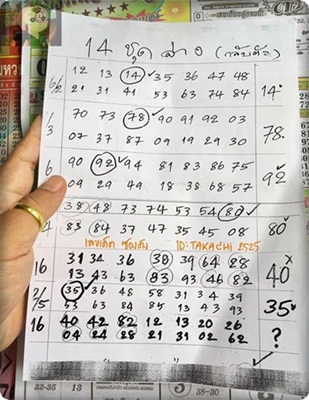 14 ชุด ล่าง (กลับตัว)
12 13 14 35 36 47 48
21 31 41 53 63 74 84 14
70 73 78 90 91 92 03
3 07 37 87 09 19 29 30 78
6 90 92 94 81 83 86 75
09 29 49 18 38 68 57 92
38 48 73 74 53 54 80
83 84 37 47 35 45 08 80
เลขเด็ด ซองดัง ID:TAKACHI 2525
16 31 34 36 38 39 64 28
13 43 63 83 93 46 82 40 x
2/5 35 36 48 58 31 34 39
53 63 84 85 13 43 93 35
16 40 42 82 12 13 20 26
04 24 28 21 31 02 62 ?
32-35 13
38-30